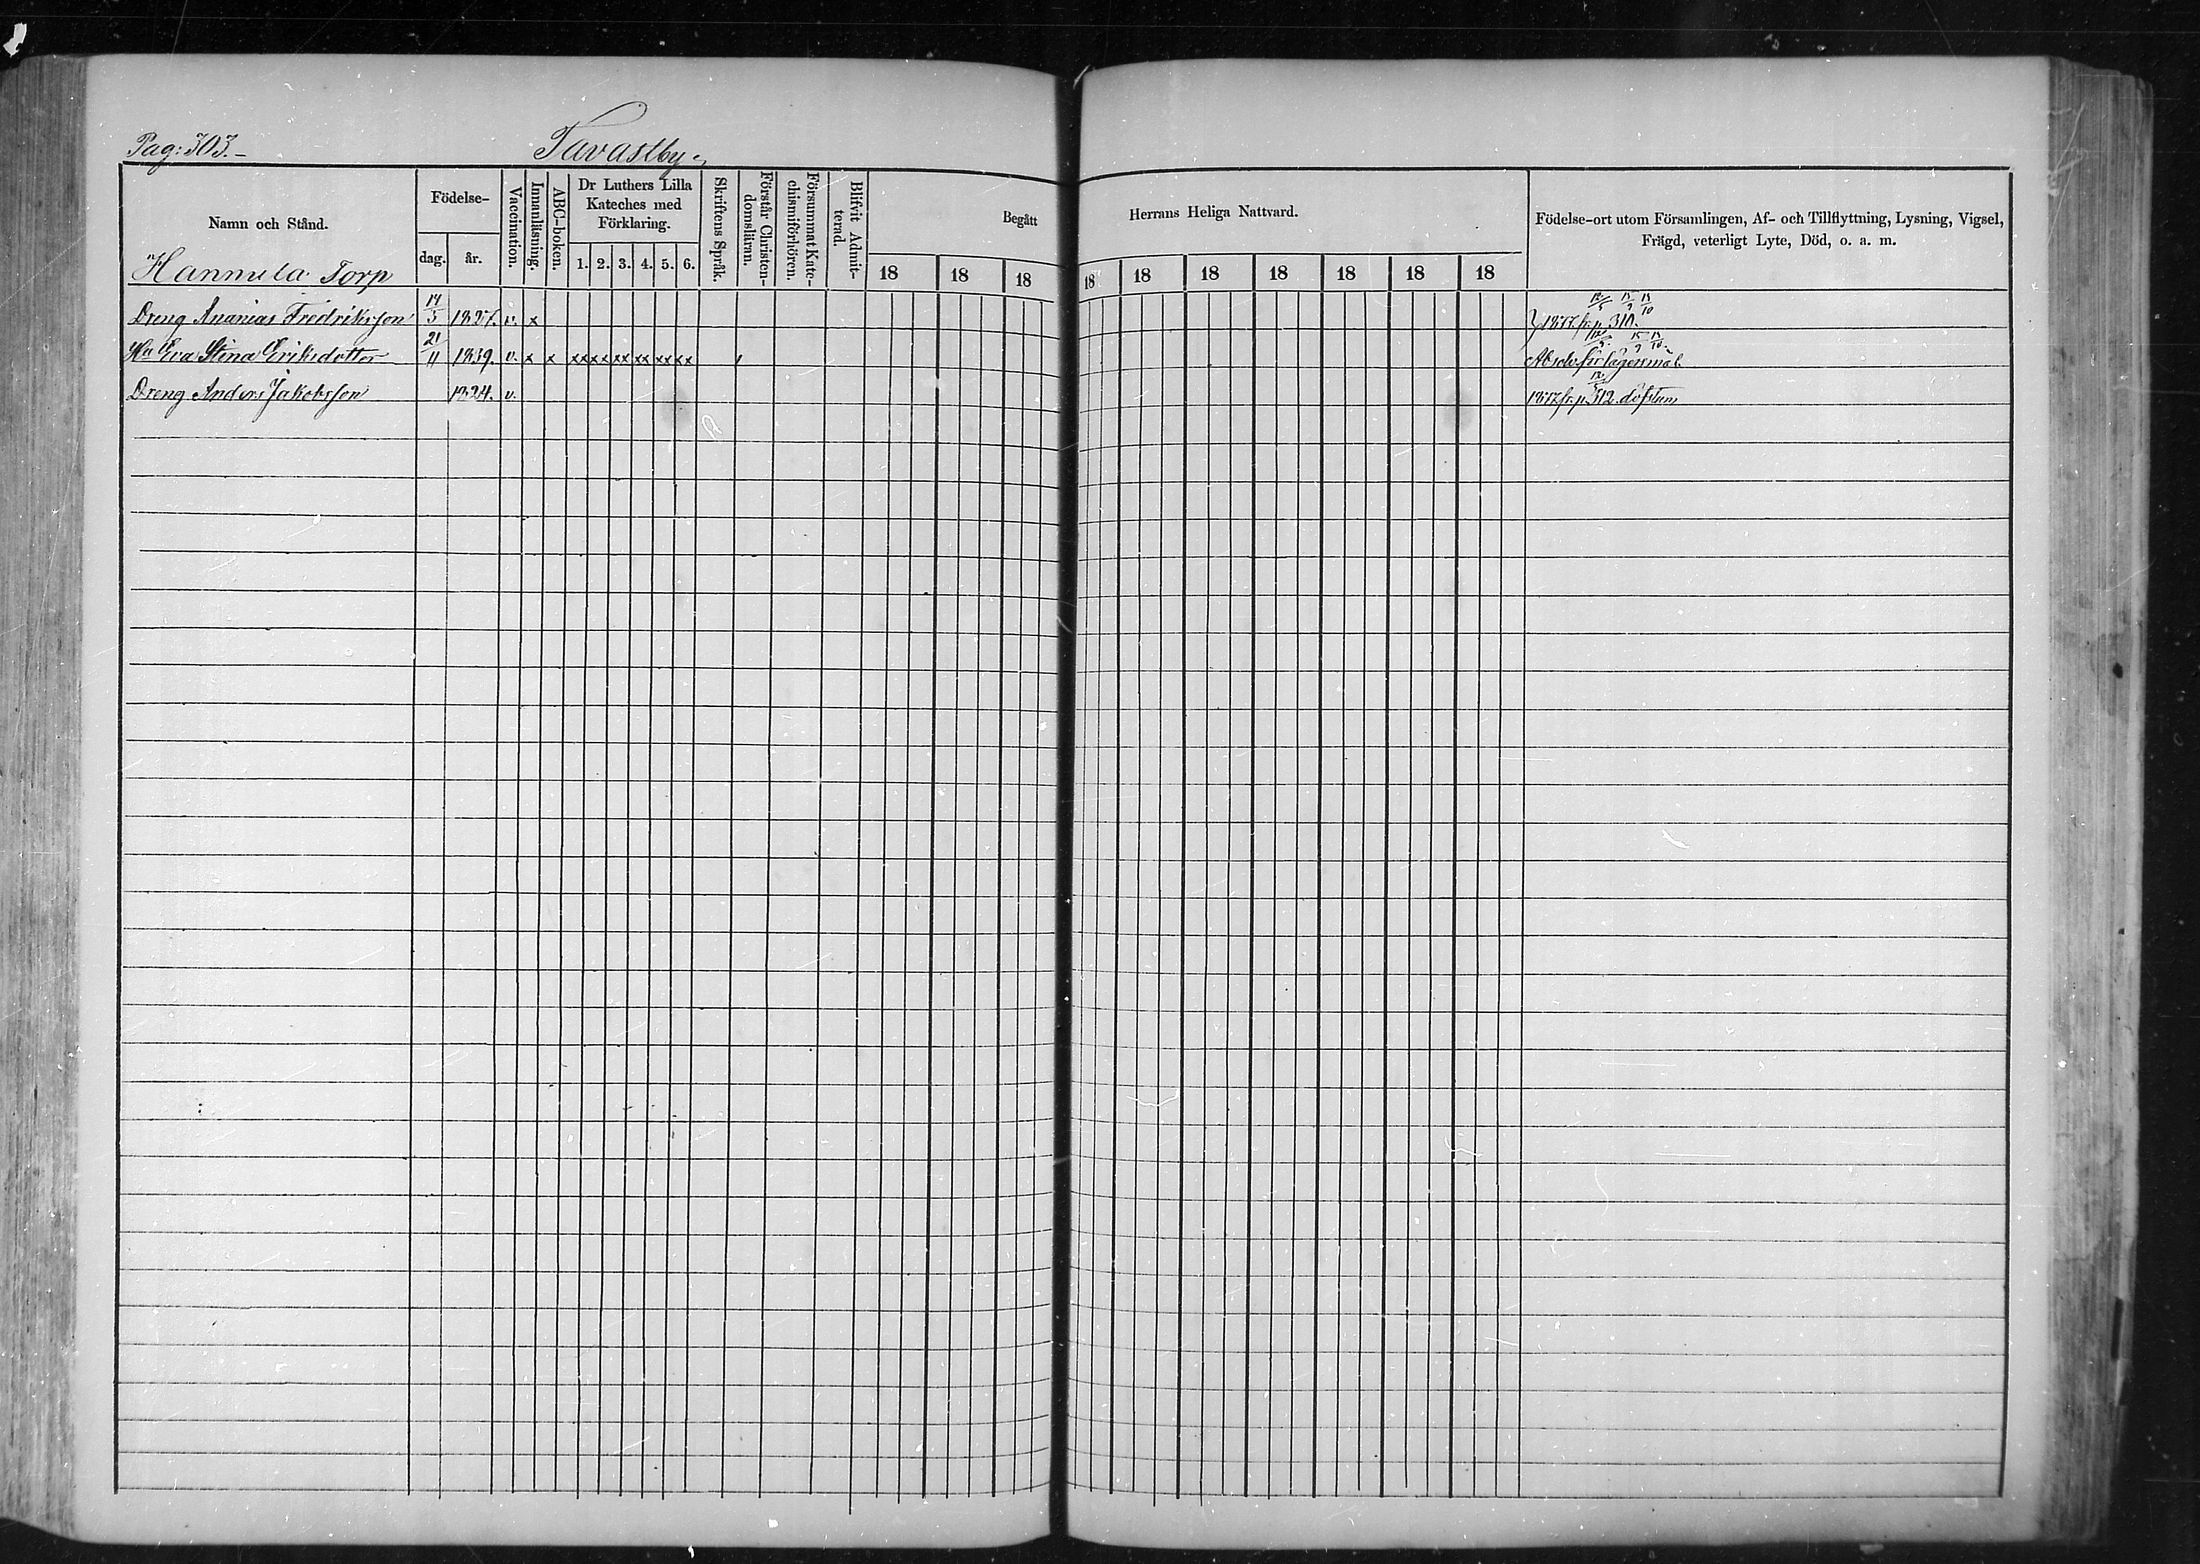 Pag: 303.
Tavastby
Namn och Stånd.
Födelse-
dag.
år.
Vaccination.
Innanläsning.
ABC-boken.
Dr Luthers Lilla
Kateches med
Förklaring.
1. 2. 3. 4. 5. 6.
Skriftens Språk.
Förstår Christen-
domsläran.
Försummat Kate-
chismiförhören.
Blifvit Admit-
terad.
Begått
Herrans Heliga Nattvard.
18 18 18 18 18 18 18 18 18 18
Födelse-ort utom Församlingen, Af- och Tillflyttning, Lysning, Vigsel,
Frägd, veterligt Lyte, Död, o. a. m.
Hannula Torp
Dreng Ananias Fredriksson 14/5 1827. v. x 1877. fr. p. 310.
Hu Eva Stina Eriksdotter 21/11 1839. v. x x xx xx xx xx xx xx Absolv. för lägersmål.
Dreng Anders Jakobsson 1824. v. 1877. fr. p 312. döfstum